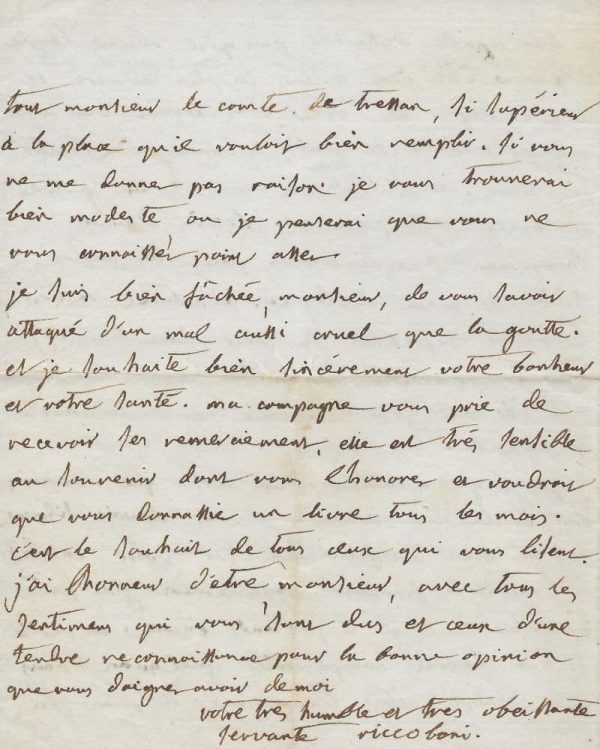 tout monsieur le comte. de tressan, si supérieur
à la place qu'il vouloit bien remplir. si vous
ne me donner pas raison je vous trouverai
bien modeste ou je penserai que vous ne
vous connaissés point assés
je suis bien fâchée, monsieur, de vous savoir
attaqué d'un mal aussi cruel que la goutte.
et je souhaite bien sincérement votre bonheur
et votre santé. ma compagne vous prie de
recevoir ses remerciement, elle est trés sensible
au souvenir dont vous l'honores et voudroit
que vous donnassie un livre tous les mois.
c'est le souhait de tous ceux qui vous lisent.
j'ai l'honneur d'être monsieur, avec tous les
sentimens qui vous sont dus, et ceux d'une
tendre reconnaissance pour la bonne opinion
que vous daignes avoir de moi
votre tres humble et tres obeissante
servante riccoboni.